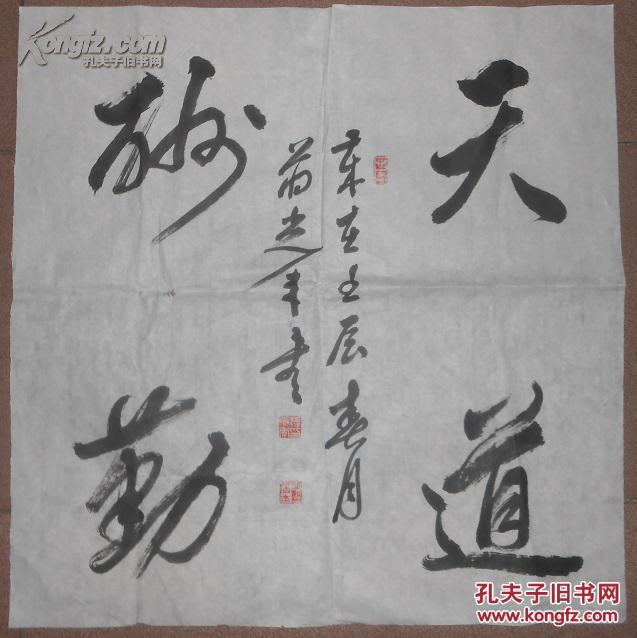 天道
酬勤
岁在壬辰春月
Kongfz.com
孔夫子旧书网
孔夫子旧书网
www.kongfz.com